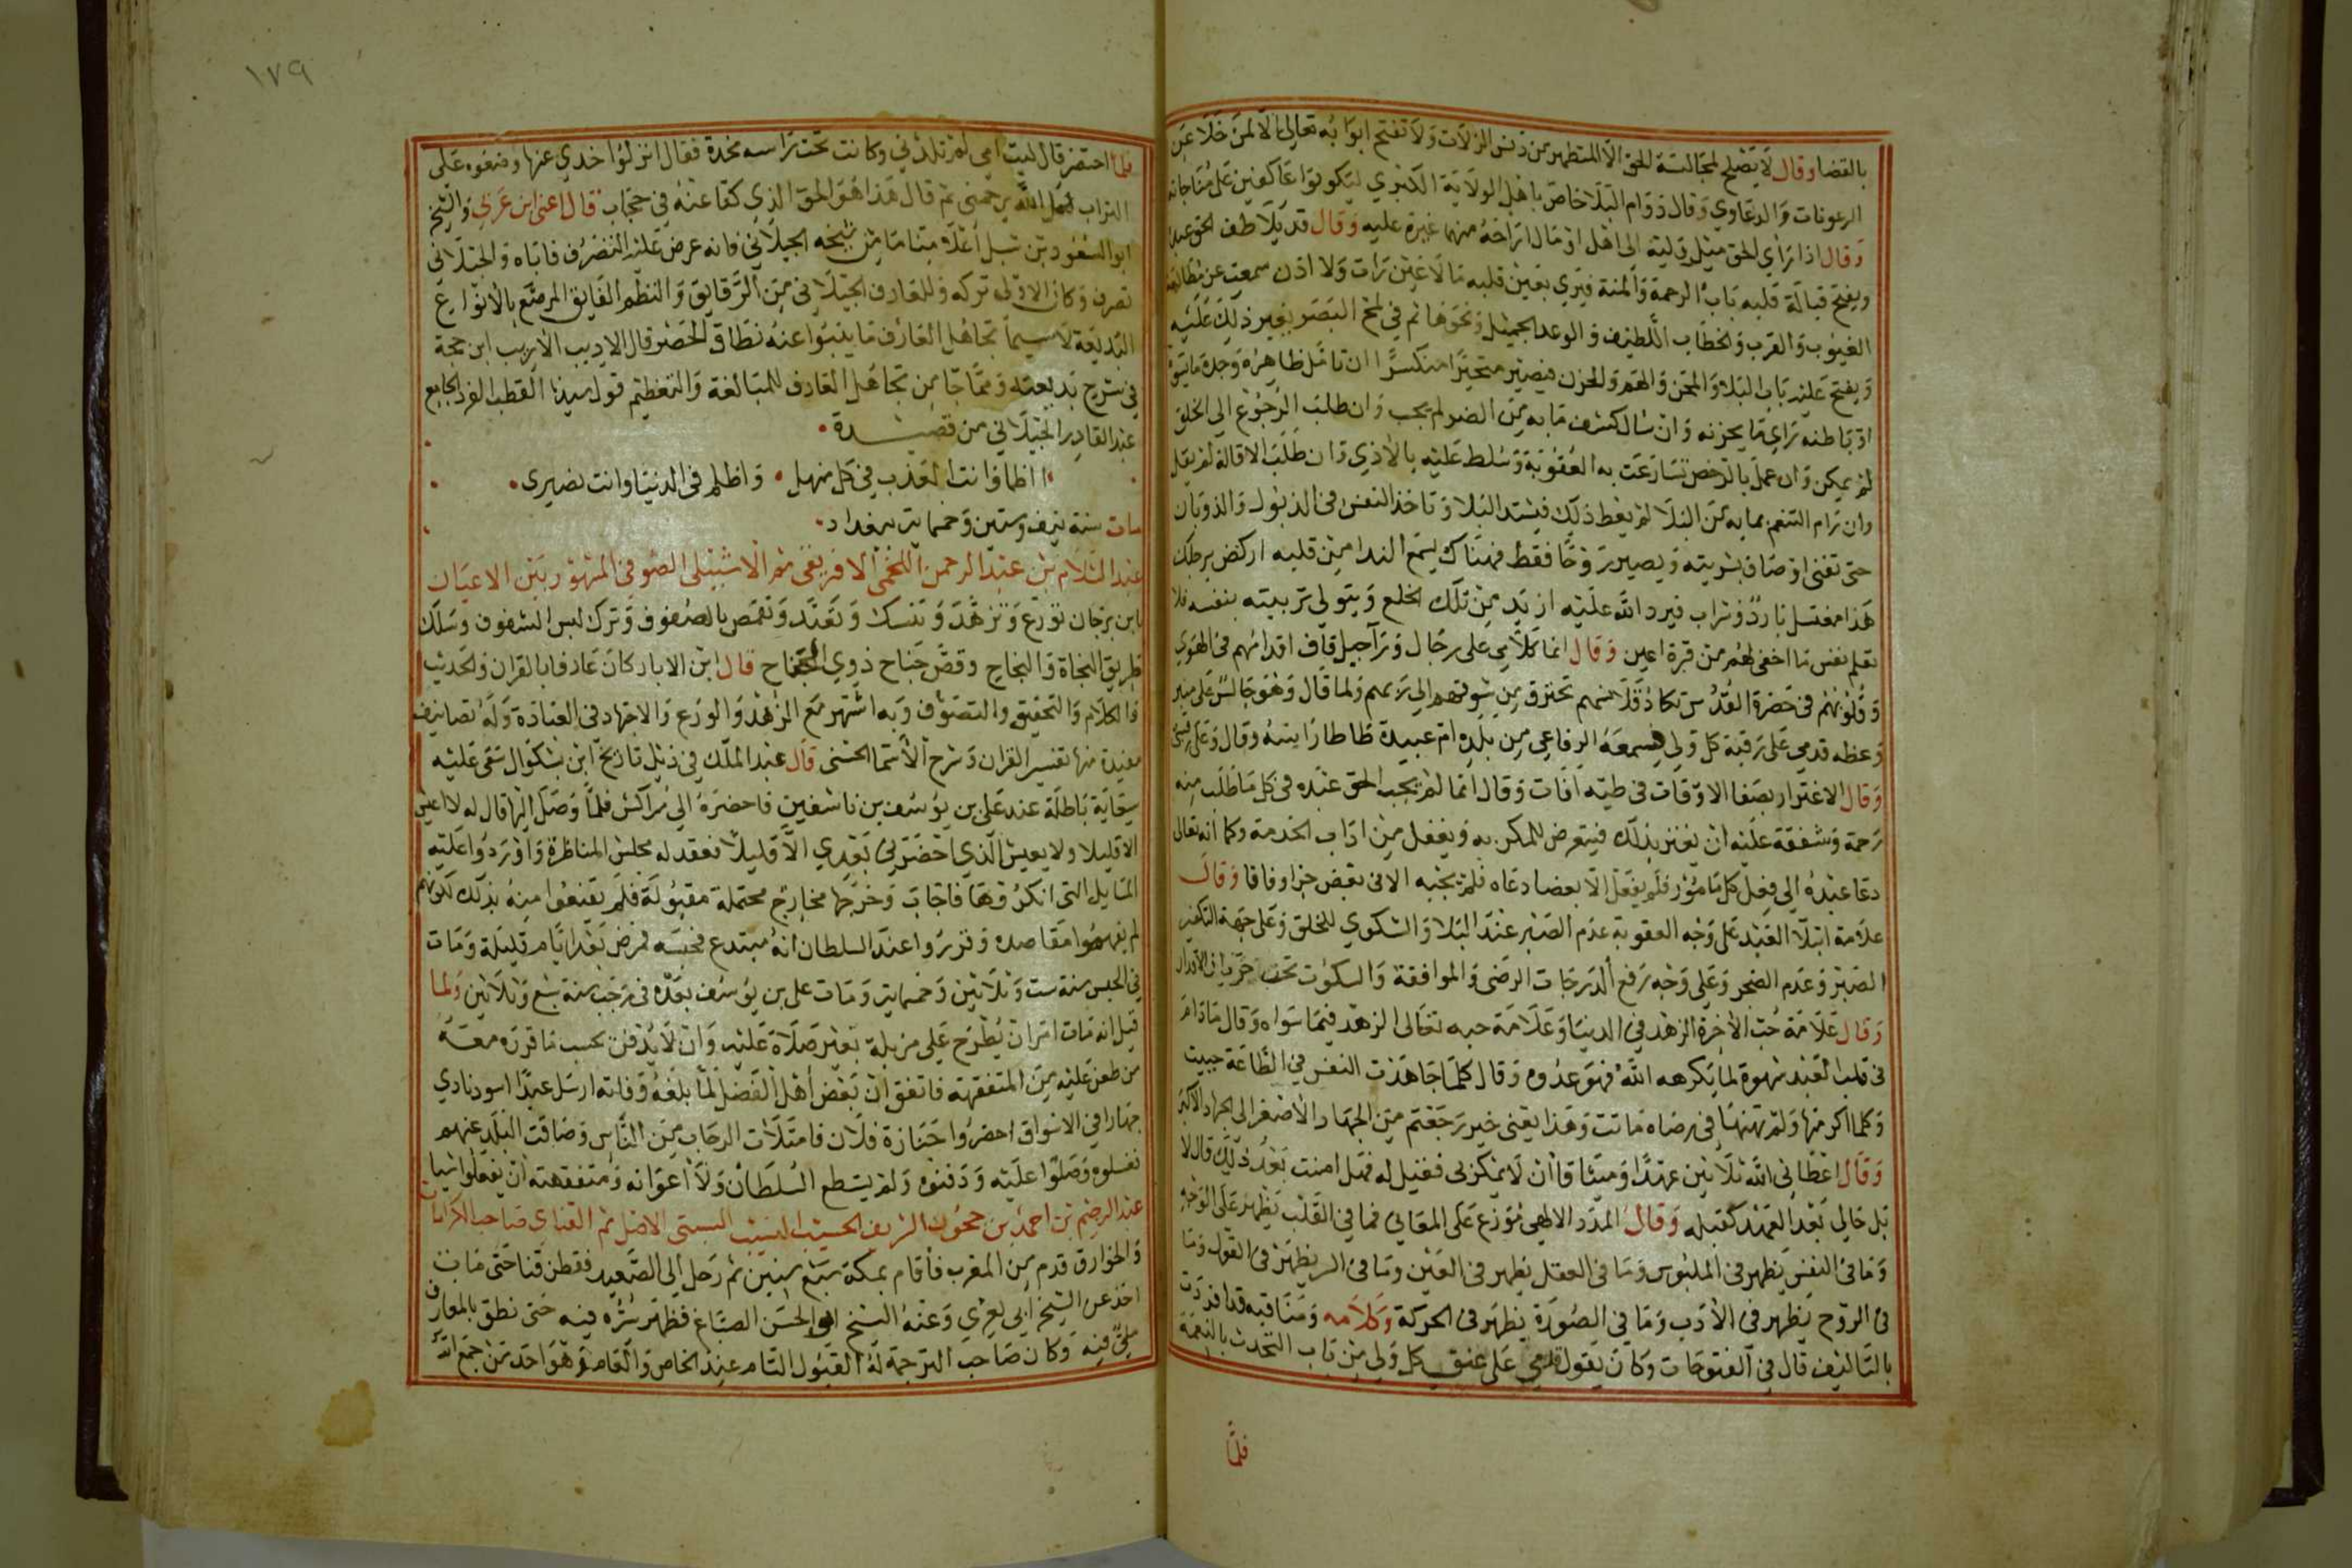 بالقضا وقال لا يصلح لمجالسة الحق الا المتطهر من دنس الزلات ولا تفتح ابوابه تعالى الا لمن خلا عن
الرعونات والدعاوي وقال دوام البلا خاص باهل الولاية الكبرى ليكونوا عاكفين على مناجاته
وقال اذا راى الحق ميل وليه الى اهل او مال اراحه منهما غيرة عليه وقال قد يلاطف الحق عبده
ويفتح قبالة قلبه باب الرحمة والمنة فيرى بعين قلبه ما لا عين رات ولا اذن سمعت من مطالعة
الغيوب والقرب والخطاب اللطيف والوعد الجميل ونحوها ثم في لمح البصر يغير ذلك عليه
ويفتح عليه باب البلا والمحن والهم والحزن فيصير متحيرا منكسرا ان تامل ظاهره وجد ما يسؤ
او باطنه راى ما يحزنه وان سال كشف ما به من الضر لم يجب وان طلب الرجوع الى الخلق
لم يمكن وان عمل بالرخص تسارعت به العقوبة وسلط عليه بالاذى وان طلب الاقالة لم يقل
وان رام التنعم بما به من البلا لم يعط ذلك فيشتد البلا وتاخذ النفس في الذبول والذوبان
حتى تفنى اوصاف بشريته ويصير روحا فقط فهناك يسمع الندا من قلبه اركض برجلك
هذا مغتسل بارد وشراب فيرد الله عليه ازيد من تلك الخلع ويتولى تربيته بنفسه فلا
تعلم نفس ما اخفى لهم من قرة اعين وقال انما كلامي على رجال وراجيل قاف اقدامهم في الهوى
وقلوبهم في حضرة القدس تكاد قلانسهم تحترق من شوقهم الى ربهم ولما قال وهو جالس على منبر
وعظه قدمي على رقبة كل ولي سمعه الرفاعي من بلده ام عبيدة طاطا رايته وقال وعلى رقبتى
وقال الاغترار بصفا الاوقات في طيه افات وقال انما لم يجب الحق عبده في كل ما طلب منه
رحمة وشفقة عليه ان يغتر بذلك فيتعرض للمكر به ويغفل من اداب الخدمة وكما انه تعالى
دعا عبده الى فعل كل مامور فلم يفعل الا بعضا دعاه فلم يجبه الا في بعض جزا وفاقا وقال
علامة ابتلا العبد على وجه العقوبة عدم الصبر عند البلا والشكوى للخلق وعلى جهة التكفير
الصبر وعدم الضجر وعلى وجه رفع الدرجات الرضى والموافقة والسكوت تحت جريان الاقدار
وقال علامة حب الاخرة الزهد في الدنيا وعلامة حبه تعالى الزهد فيما سواه وقال ما دام
في قلب العبد شهوة لما يكرهه الله فهو عدوه وقال كلما جاهدت النفس في الطاعة حييت
وكلما اكرمتها ولم تهنها في رضاه ماتت وهذا يعنى خبر رجعتم من الجهاد الاصغر الى الجهاد الاكبر
وقال اعطاني الله ثلاثين عهدا وميثاقا ان لا يمكر بي فقيل له فهل امنت بعد ذلك قال لا
بل حالي بعد العهد كقبله وقال المدد الالهي موزع على المعاني فما في القلب يظهر على الوجه
وما في النفس يظهر في الملبوس وما في العقل يظهر في العين وما في السر يظهر في القول وما
في الروح يظهر في الادب وما في الصورة يظهر في الحركة وكلامه ومناقبه قد افردت
بالتاليف قال في الفتوحات وكان يقول قدمي على عنق كل ولي من باب التحدث بالنعمة
فلما
١٧٩
فلما احتضر قال ليت امي لم تلدني وكانت تحت راسه مخدة فقال انزلوا خدي عنها وضعوه على
التراب لعل الله يرحمني ثم قال هذا هو الحق الذي كنا عنه في حجاب قال اعني ابن عربي والشيخ
ابو السعود بن شبل اعلا مقاما من شيخه الجيلاني فانه عرض عليه التصرف فاباه والجيلاني
تصرف وكان الاولى تركه وللعارف الجيلاني من الرقايق والنظم الفايق المرصع بالانواع
البديعة لاسيما تجاهل العارف ما ينبوا عنه نطاق الحصر قال الاديب الاريب ابن حجة
في شرح بديعته ومما جا من تجاهل العارف للمبالغة والتعظيم قول سيدنا القطب الفرد الجامع
عبد القادر الجيلاني من قصيدة
ااظما وانت العذب في كل منهل • واظلم في الدنيا وانت نصيري
مات سنة نيف وستين وخمسماية ببغداد
عبد السلام بن عبد الرحمن اللخمي الافريقي ثم الاشبيلي الصوفي المشهور بين الاعيان
بابن برجان تورع وتزهد وتنسك وتعبد وتقمص بالصفوف وترك لبس الشفوف وسلك
طريق النجاة والنجاح وقص جناح ذوي الجناح قال ابن الابار كان عارفا بالقران والحديث
والكلام والتحقيق والتصوف وبه اشتهر مع الزهد والورع والاجتهاد في العبادة وله تصانيف
مفيدة منها تفسير القران وشرح الاسما الحسنى قال عبد الملك في ذيل تاريخ ابن بشكوال سعى عليه
سعاية باطلة عند على بن يوسف بن تاشفين فاحضره الى مراكش فلما وصل اليها قال له لا اعيش
الا قليلا ولا يعيش الذي احضرني بعدي الا قليلا فعقد له مجلس المناظرة واوردوا عليه
المسايل التي انكروها فاجاب وخرجها مخارج محتملة مقبولة فلم يقنعوا منه بذلك لكونهم
لم يفهموا مقاصده وقرروا عند السلطان انه مبتدع فحبسه فمرض بعد ايام قليلة ومات
في الحبس سنة ست وثلاثين وخمسماية ومات على بن يوسف بعده في رجب سنة سبع وثلاثين ولما
قيل انه مات امر ان يطرح على مزبلة بغير صلاة عليه وان لا يدفن بحسب ما قرره معه
من طعن عليه من المتفقهة فاتفق ان بعض اهل الفضل لما بلغه وفاته ارسل عبدا اسود نادى
جهارا في الاسواق احضروا جنازة فلان فامتلات الرحاب من الناس وضاقت البلد عنهم
فغسلوه وصلوا عليه ودفنوه ولم يستطع السلطان ولا اعوانه ومتفقهته ان يفعلوا شيا
عبد الرحيم بن احمد بن حجون الشريف الحسيب النسيب السبتي الاصل ثم القناي صاحب الكرامات
والخوارق قدم من المغرب فاقام بمكة سبع سنين ثم رحل الى الصعيد فقطن قنا حتى مات
اخذ عن الشيخ ابي يعزي وعنه الشيخ ابو الحسن الصباغ فظهر سره فيه حتى نطق بالمعارف
فيه وكان صاحب الترجمة له القبول التام عند الخاص والعام وهو احد من جمع الله